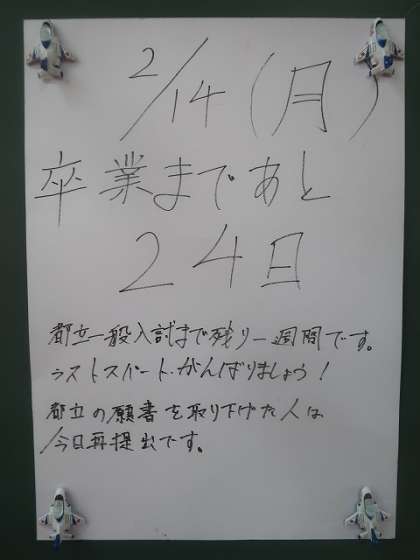 2/14(月)
卒業まであと
24日
都立一般入試まで残り一週間です。
ラストスパート・がんばりましょう!
都立の願書を取り下げた人は
今日再提出です。